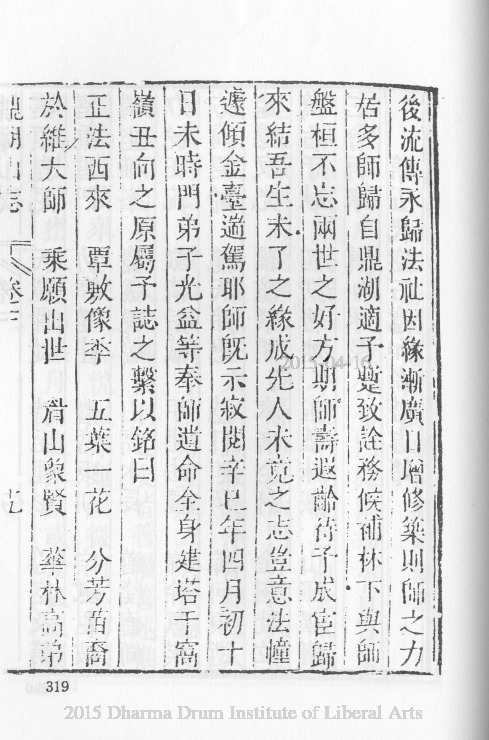 後流傳永歸法社因緣漸廣日增修築則師之力
居多師歸自鼎湖適予蹔致詮務候補林下與師
盤桓不忘兩世之好方期師壽遐齡待予成宦歸
來結吾生未了之緣成先人未竟之志豈意法幢
遽傾金臺適駕耶師旣示寂閱辛巳年四月初十
日未時門弟子光益等奉師遺命全身建塔于窩
嶺丑向之原屬予誌之繫以銘曰
正法西來　覃敷像季　五葉一花　分芳苗裔
於維大師　乘願出世　眉山象賢　華林高弟
鼎湖山志　卷三　九
319
2015-04-10
2015 Dharma Drum Institute of Liberal Arts